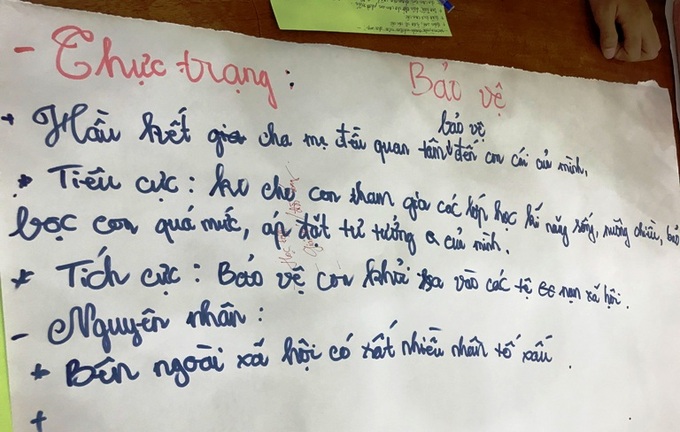 - Thực trạng: Bảo vệ
bảo vệ
+ Hầu hết cha mẹ đều quan tâm đến con cái của mình,
* Tiêu cực: ko cho con tham gia các lớp học kĩ năng sống, nuông chiều, bao
bọc con quá mức, áp đặt tư tưởng của mình.
* Tích cực: Bảo vệ con khỏi sa vào các tệ nạn xã hội.
- Nguyên nhân:
+ Bên ngoài xã hội có rất nhiều nhân tố xấu.
+